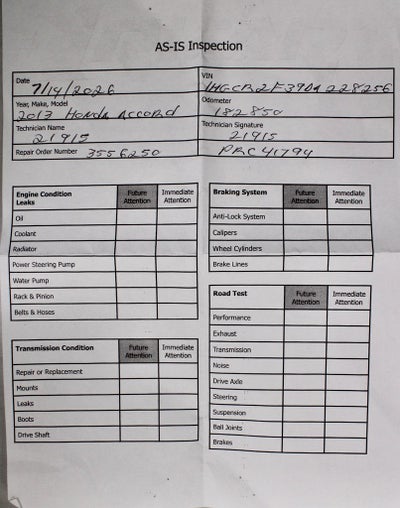 AS-IS Inspection
Date 7/14/2026
VIN 1HGCR2F39DA 228256
Year, Make, Model 2013 HONDA ACCORD
Odometer 182850
Technician Name 21915
Technician Signature 21915
Repair Order Number 3556250
PRC 41794
Engine Condition Leaks Future Attention Immediate Attention
Oil
Coolant
Radiator
Power Steering Pump
Water Pump
Rack & Pinion
Belts & Hoses
Transmission Condition Future Attention Immediate Attention
Repair or Replacement
Mounts
Leaks
Boots
Drive Shaft
Braking System Future Attention Immediate Attention
Anti-Lock System
Calipers
Wheel Cylinders
Brake Lines
Road Test Future Attention Immediate Attention
Performance
Exhaust
Transmission
Noise
Drive Axle
Steering
Suspension
Ball Joints
Brakes